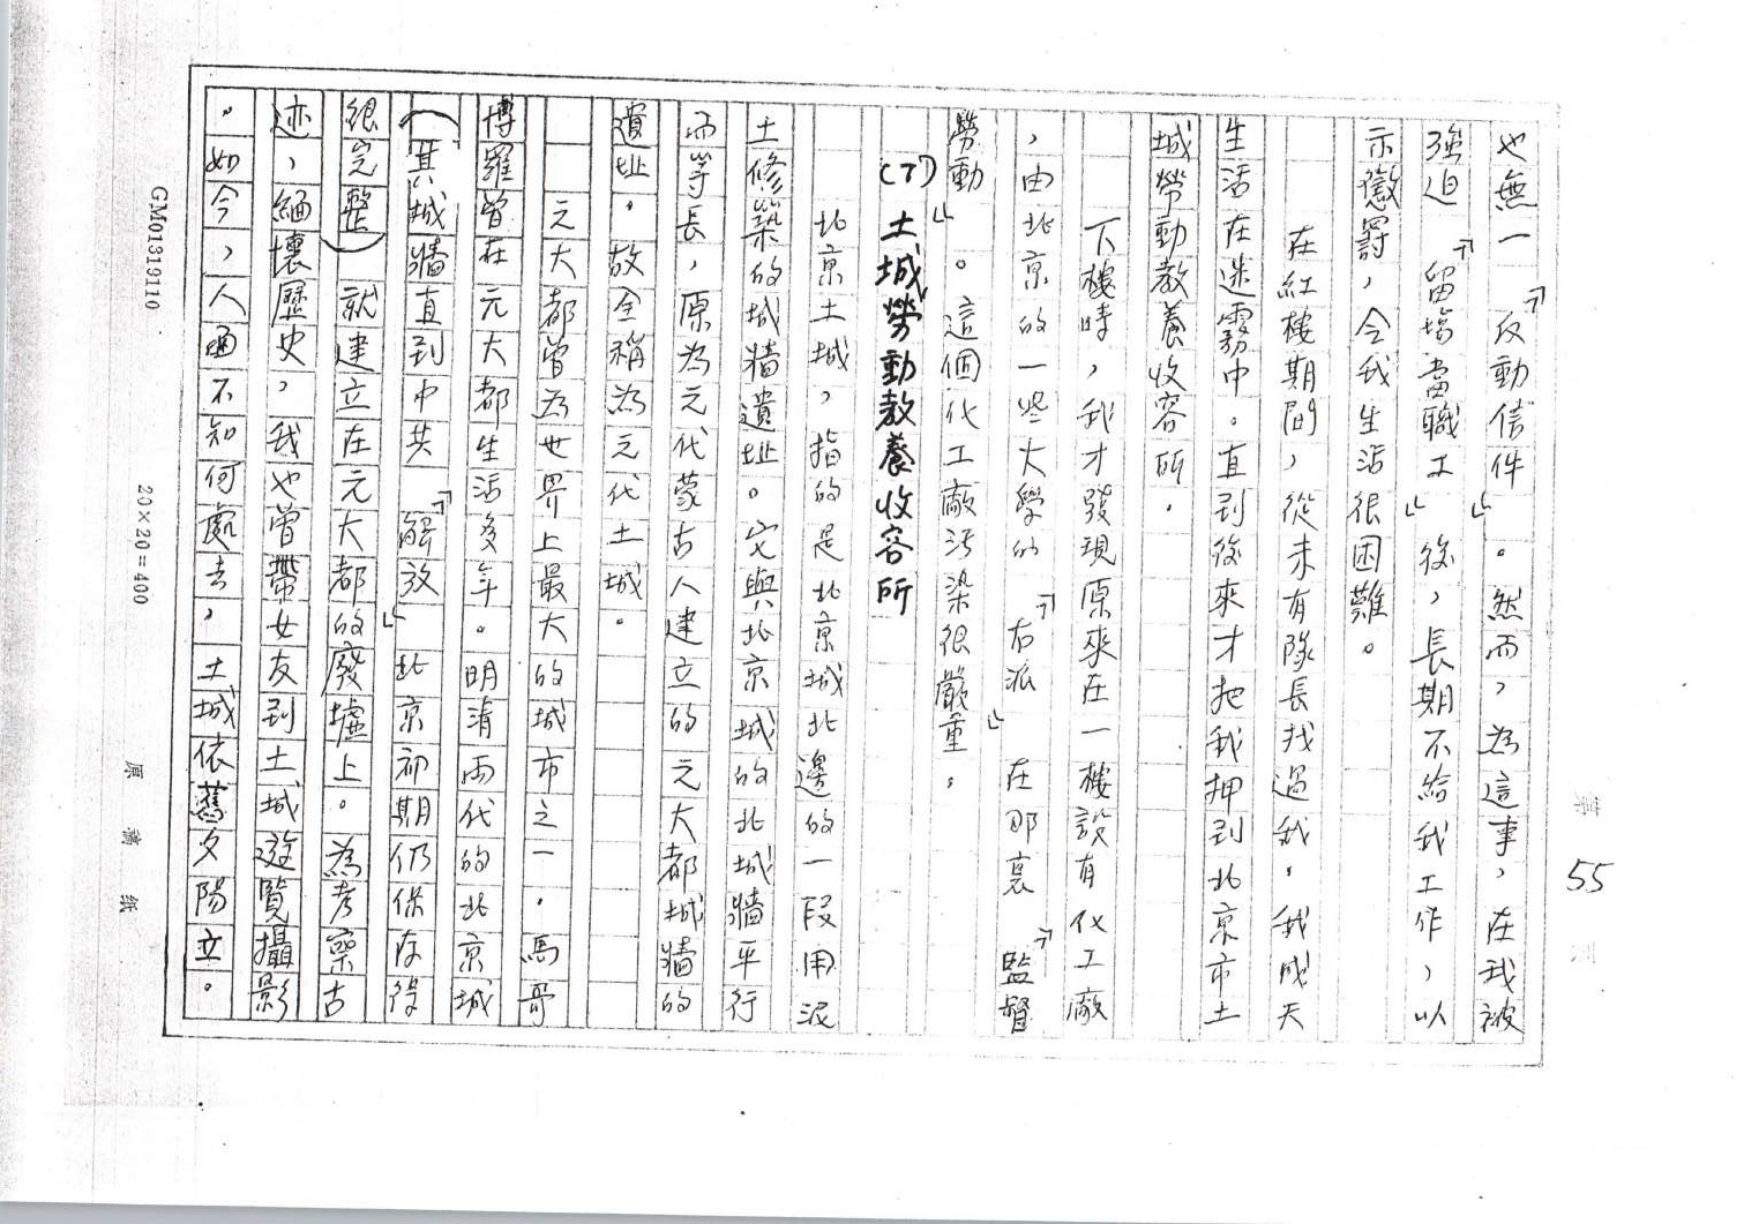 第 55 頁
也無一「反動信件」。然而，為這事，在我被
強迫「留場當職工」後，長期不給我工作，以
示懲罰，令我生活很困難。
在紅樓期間，從未有隊長找過我，我成天
生活在迷霧中。直到後來才把我押到北京市土
城勞動教養收容所．
下樓時，我才發現原來在一樓設有化工廠
，由北京的一些大學的「右派」在那裏「監督
勞動」。這個化工廠污染很嚴重．
(7)土城勞動教養收容所
北京土城，指的是北京城北邊的一段用泥
土修築的城牆遺址。它與北京城的北城牆平行
而等長，原為元代蒙古人建立的元大都城牆的
遺址．故全稱為元代土城．
元大都曾為世界上最大的城市之一．馬哥
博羅曾在元大都生活多年。明清兩代的北京城
（其城牆直到中共「解放」北京初期仍保存得
很完整）就建立在元大都的廢墟上。為考察古
迹，緬懷歷史，我也曾帶女友到土城遊覽攝影
。如今，人面不知何處去，土城依舊夕陽立。
GM01319110
20×20=400
原稿紙